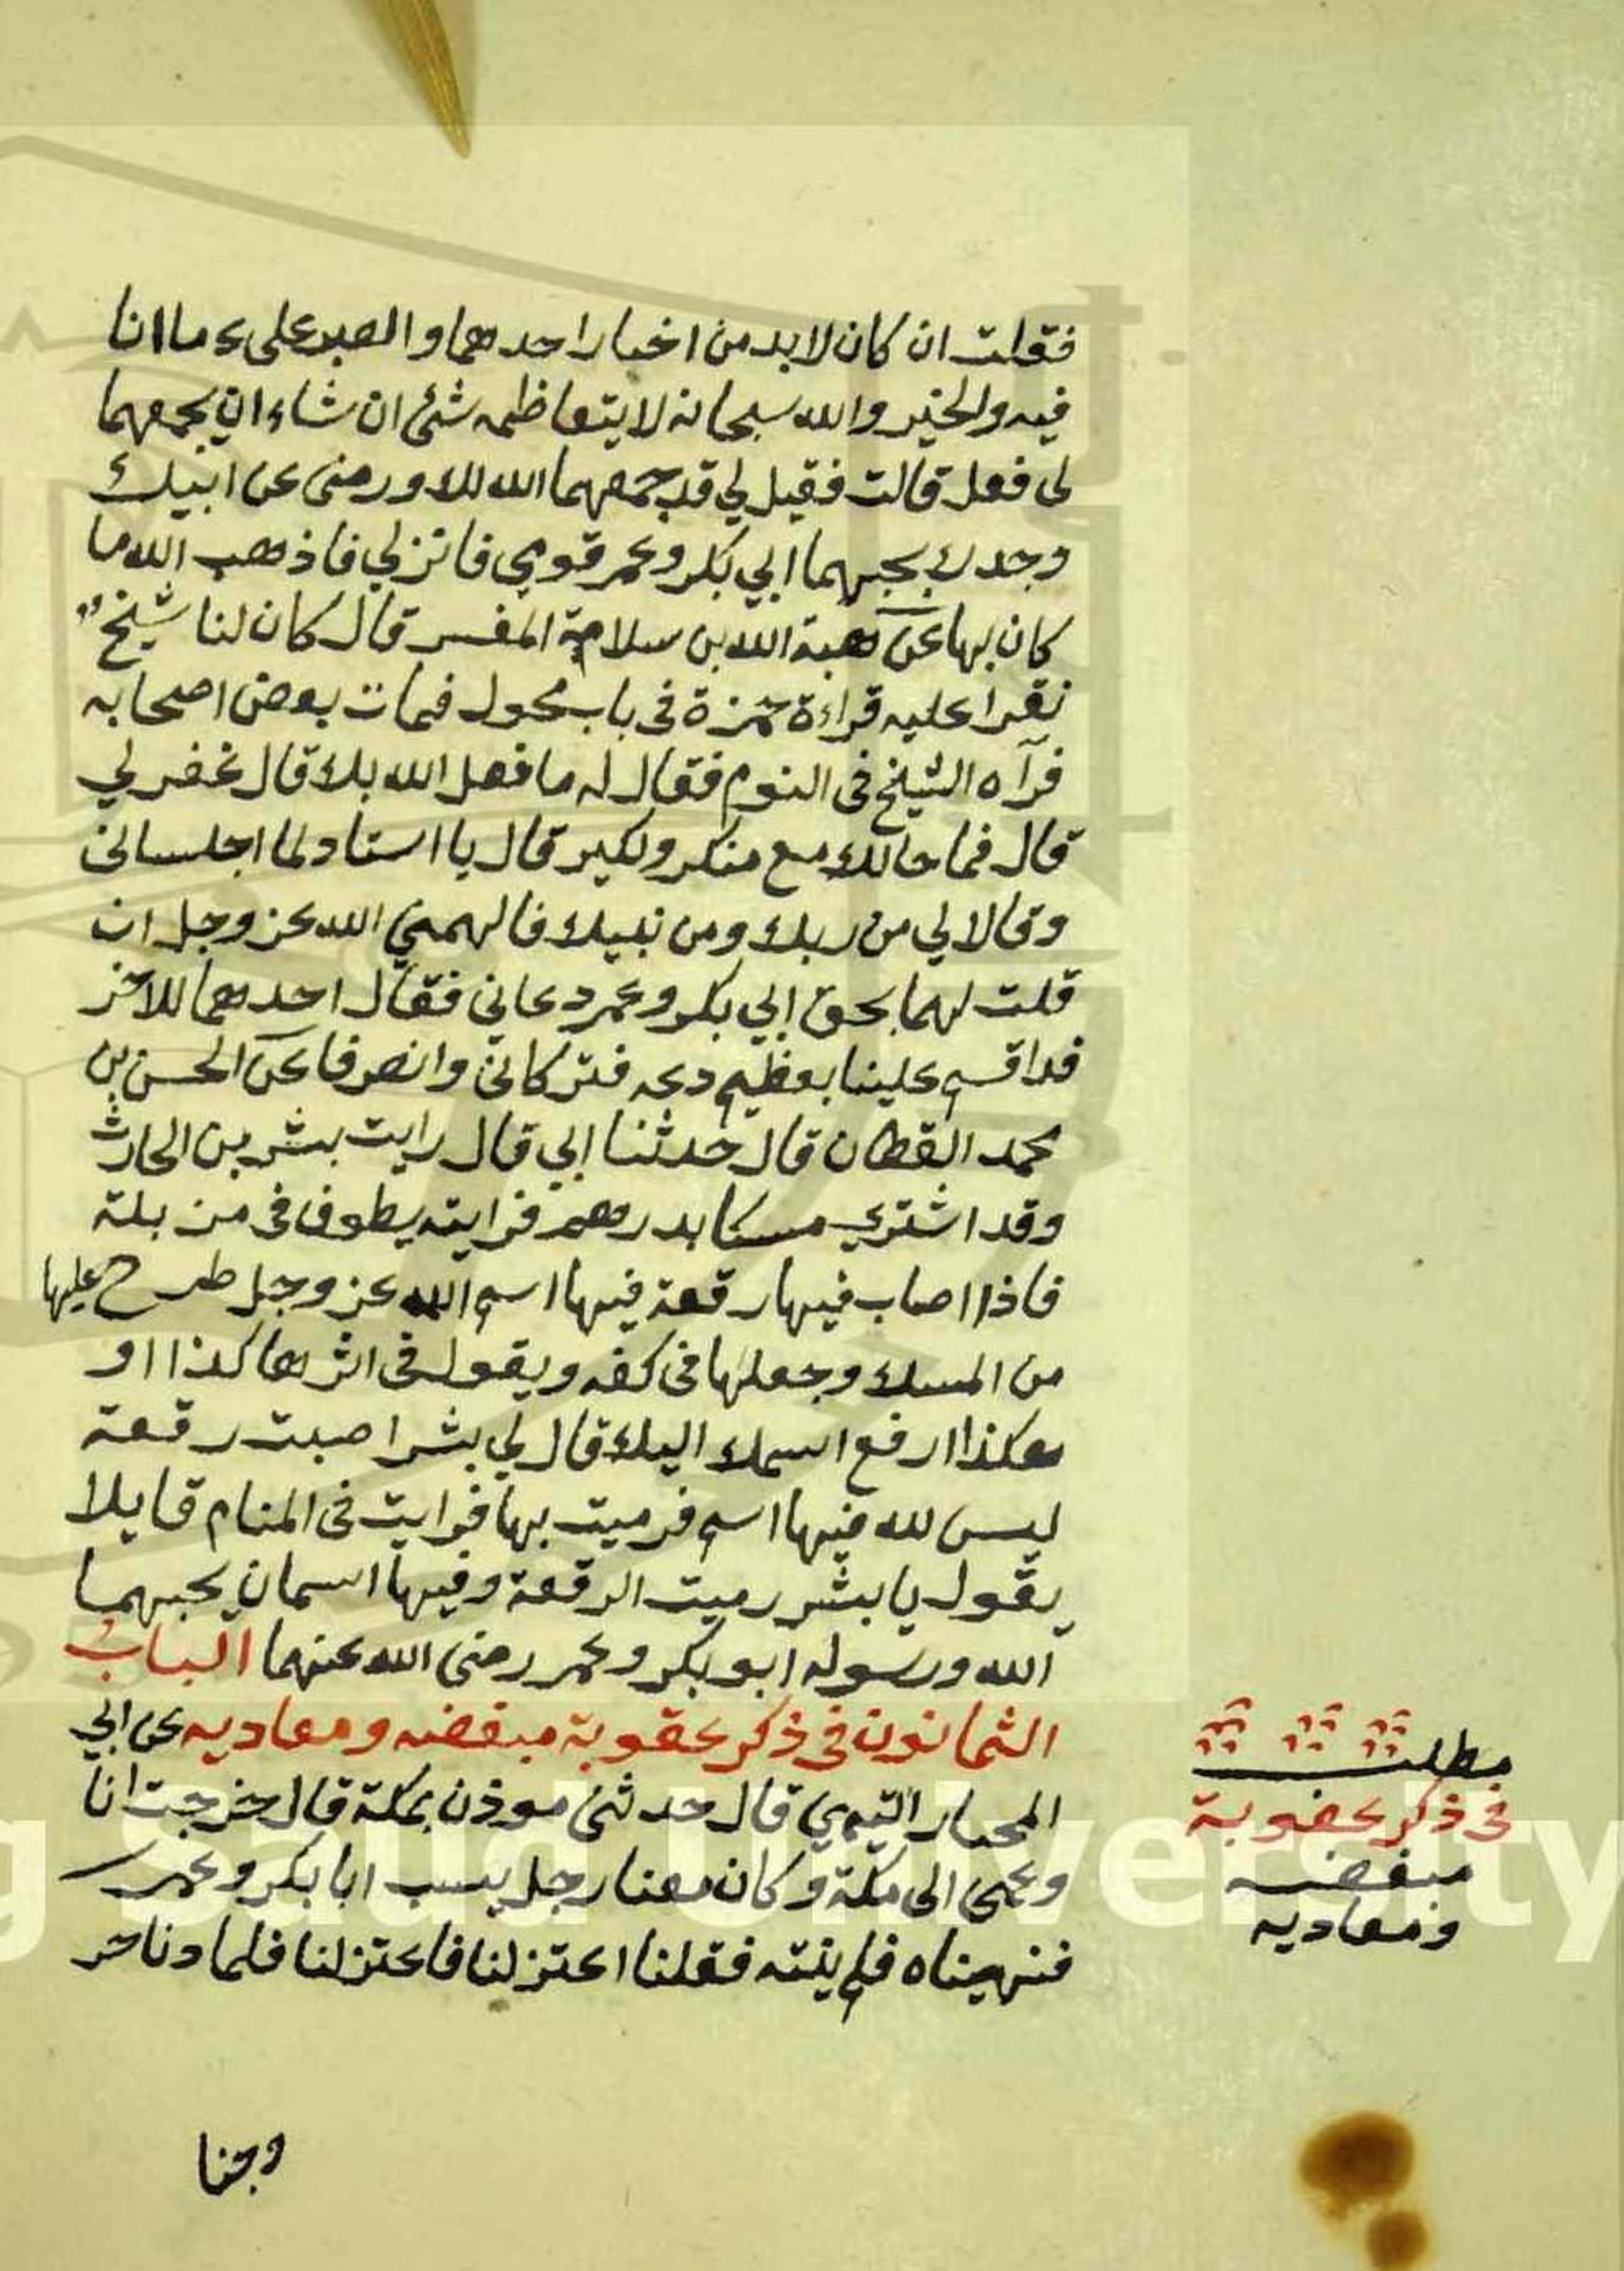 فقلت ان كان لابد من اختيار احدهما والصبر على ما انا
فيه والخير والله سبحانه لا يتعاظمه شئ ان شاء ان يجمعهما
لي فعل قالت فقيل لي قد جمعهما الله لك ورضى عن ابيك
وجدك بحبهما ابي بكر وعمر قومي فانزلي فاذهب الله ما
كان بها عن هبة الله بن سلامة المفسر قال كان لنا شيخ
نقرا عليه قراءة حمزة فى باب محول فمات بعض اصحابه
فرآه الشيخ فى النوم فقال له ما فعل الله بك قال غفر لي
قال فما حالك مع منكر ونكير قال يا استاد لما اجلسانى
وقالا لي من ربك ومن نبيك فالهمني الله عز وجل ان
قلت لهما بحق ابي بكر وعمر دعاني فقال احدهما للاخر
قد اقسم علينا بعظيم دعه فتركانى وانصرفا عن الحسن بن
محمد القطان قال حدثنا ابي قال رايت بشر بن الحارث
وقد اشترى مسكا بدرهم فرايته يطوف فى مزبلة
فاذا اصاب فيها رقعة فيها اسم الله عز وجل طرح عليها
من المسك وجعلها فى كفه ويقول فى اثرها كذا او
هكذا ارفع اسمك اليك قال لي بشر اصبت رقعة
ليس لله فيها اسم فرميت بها فرايت فى المنام قايلا
يقول يا بشر رميت الرقعة وفيها اسمان يحبهما
الله ورسوله ابو بكر وعمر رضى الله عنهما الباب
الثمانون فى ذكر عقوبة مبغضه ومعاديه عن ابي
المحيار التيمي قال حدثنى موذن بمكة قال خرجت انا
وعمى الى مكة وكان معنا رجل يسب ابا بكر وعمر
فنهيناه فلم ينته فقلنا اعتزلنا فاعتزلنا فلما دنا خر
وجنا
مطلب
فى ذكر عقوبة
مبغضه
ومعاديه
King Saud University